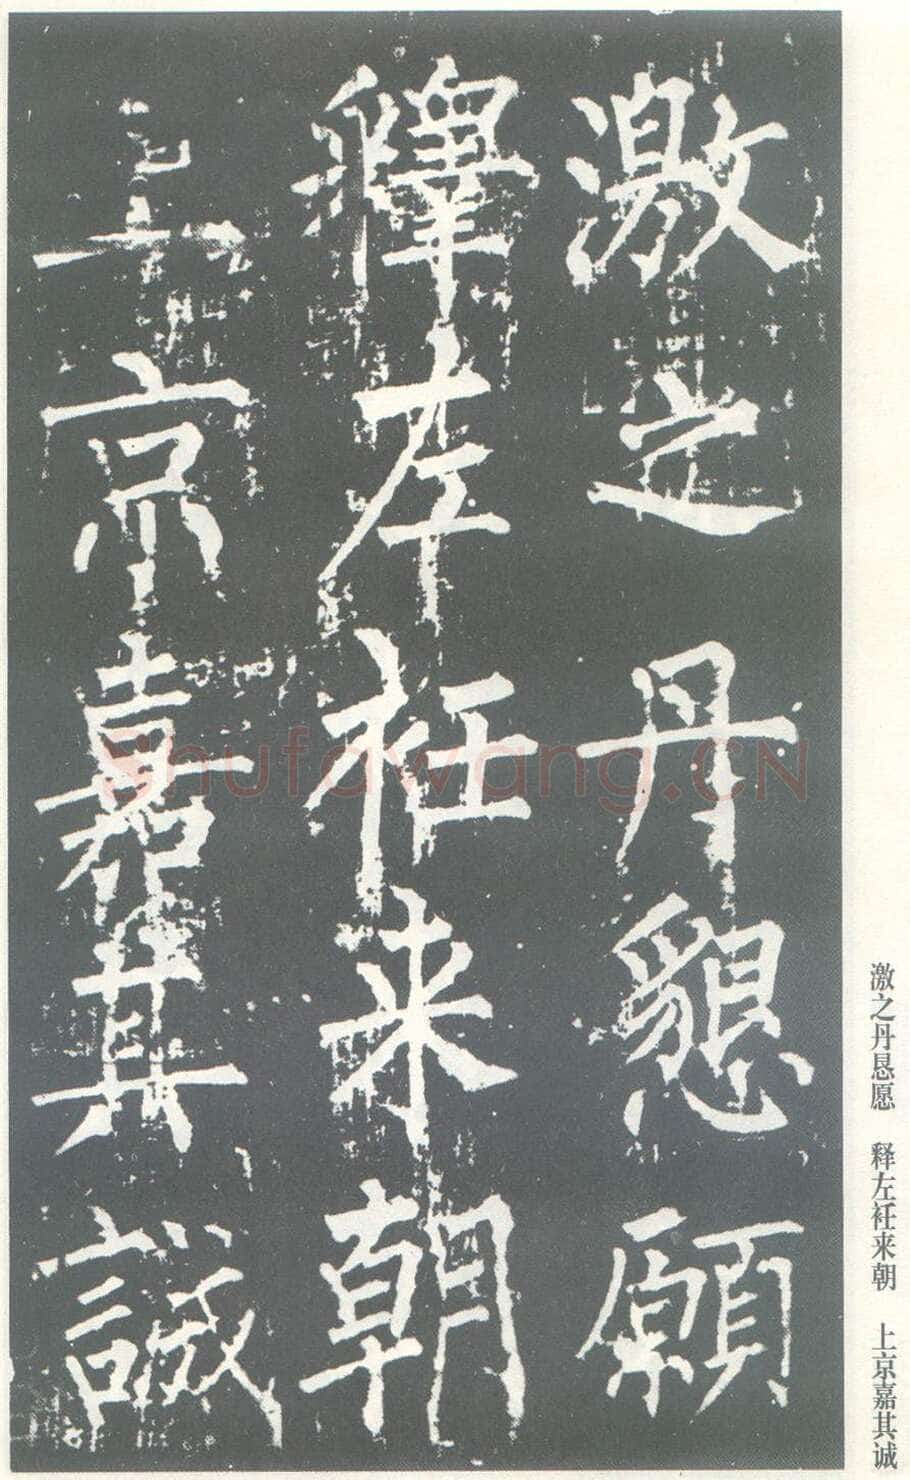 激之丹懇願
釋左衽来朝
上京嘉其誠
激之丹恳愿 释左衽来朝 上京嘉其诚
Shufawang.CN